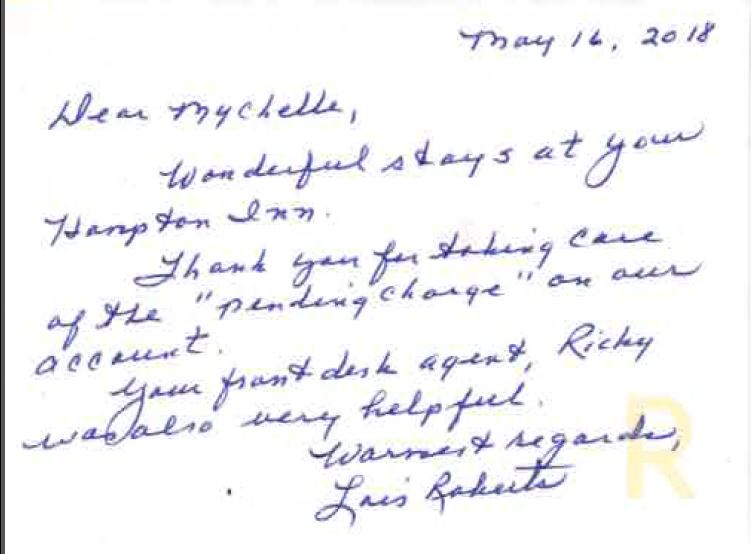 May 16, 2018
Dear Mychelle,
Wonderful stays at your
Hampton Inn.
Thank you for taking care
of the "pending charge" on our
account.
Your front desk agent, Ricky
was also very helpful.
Warmest regards,
Lois Roberts
R